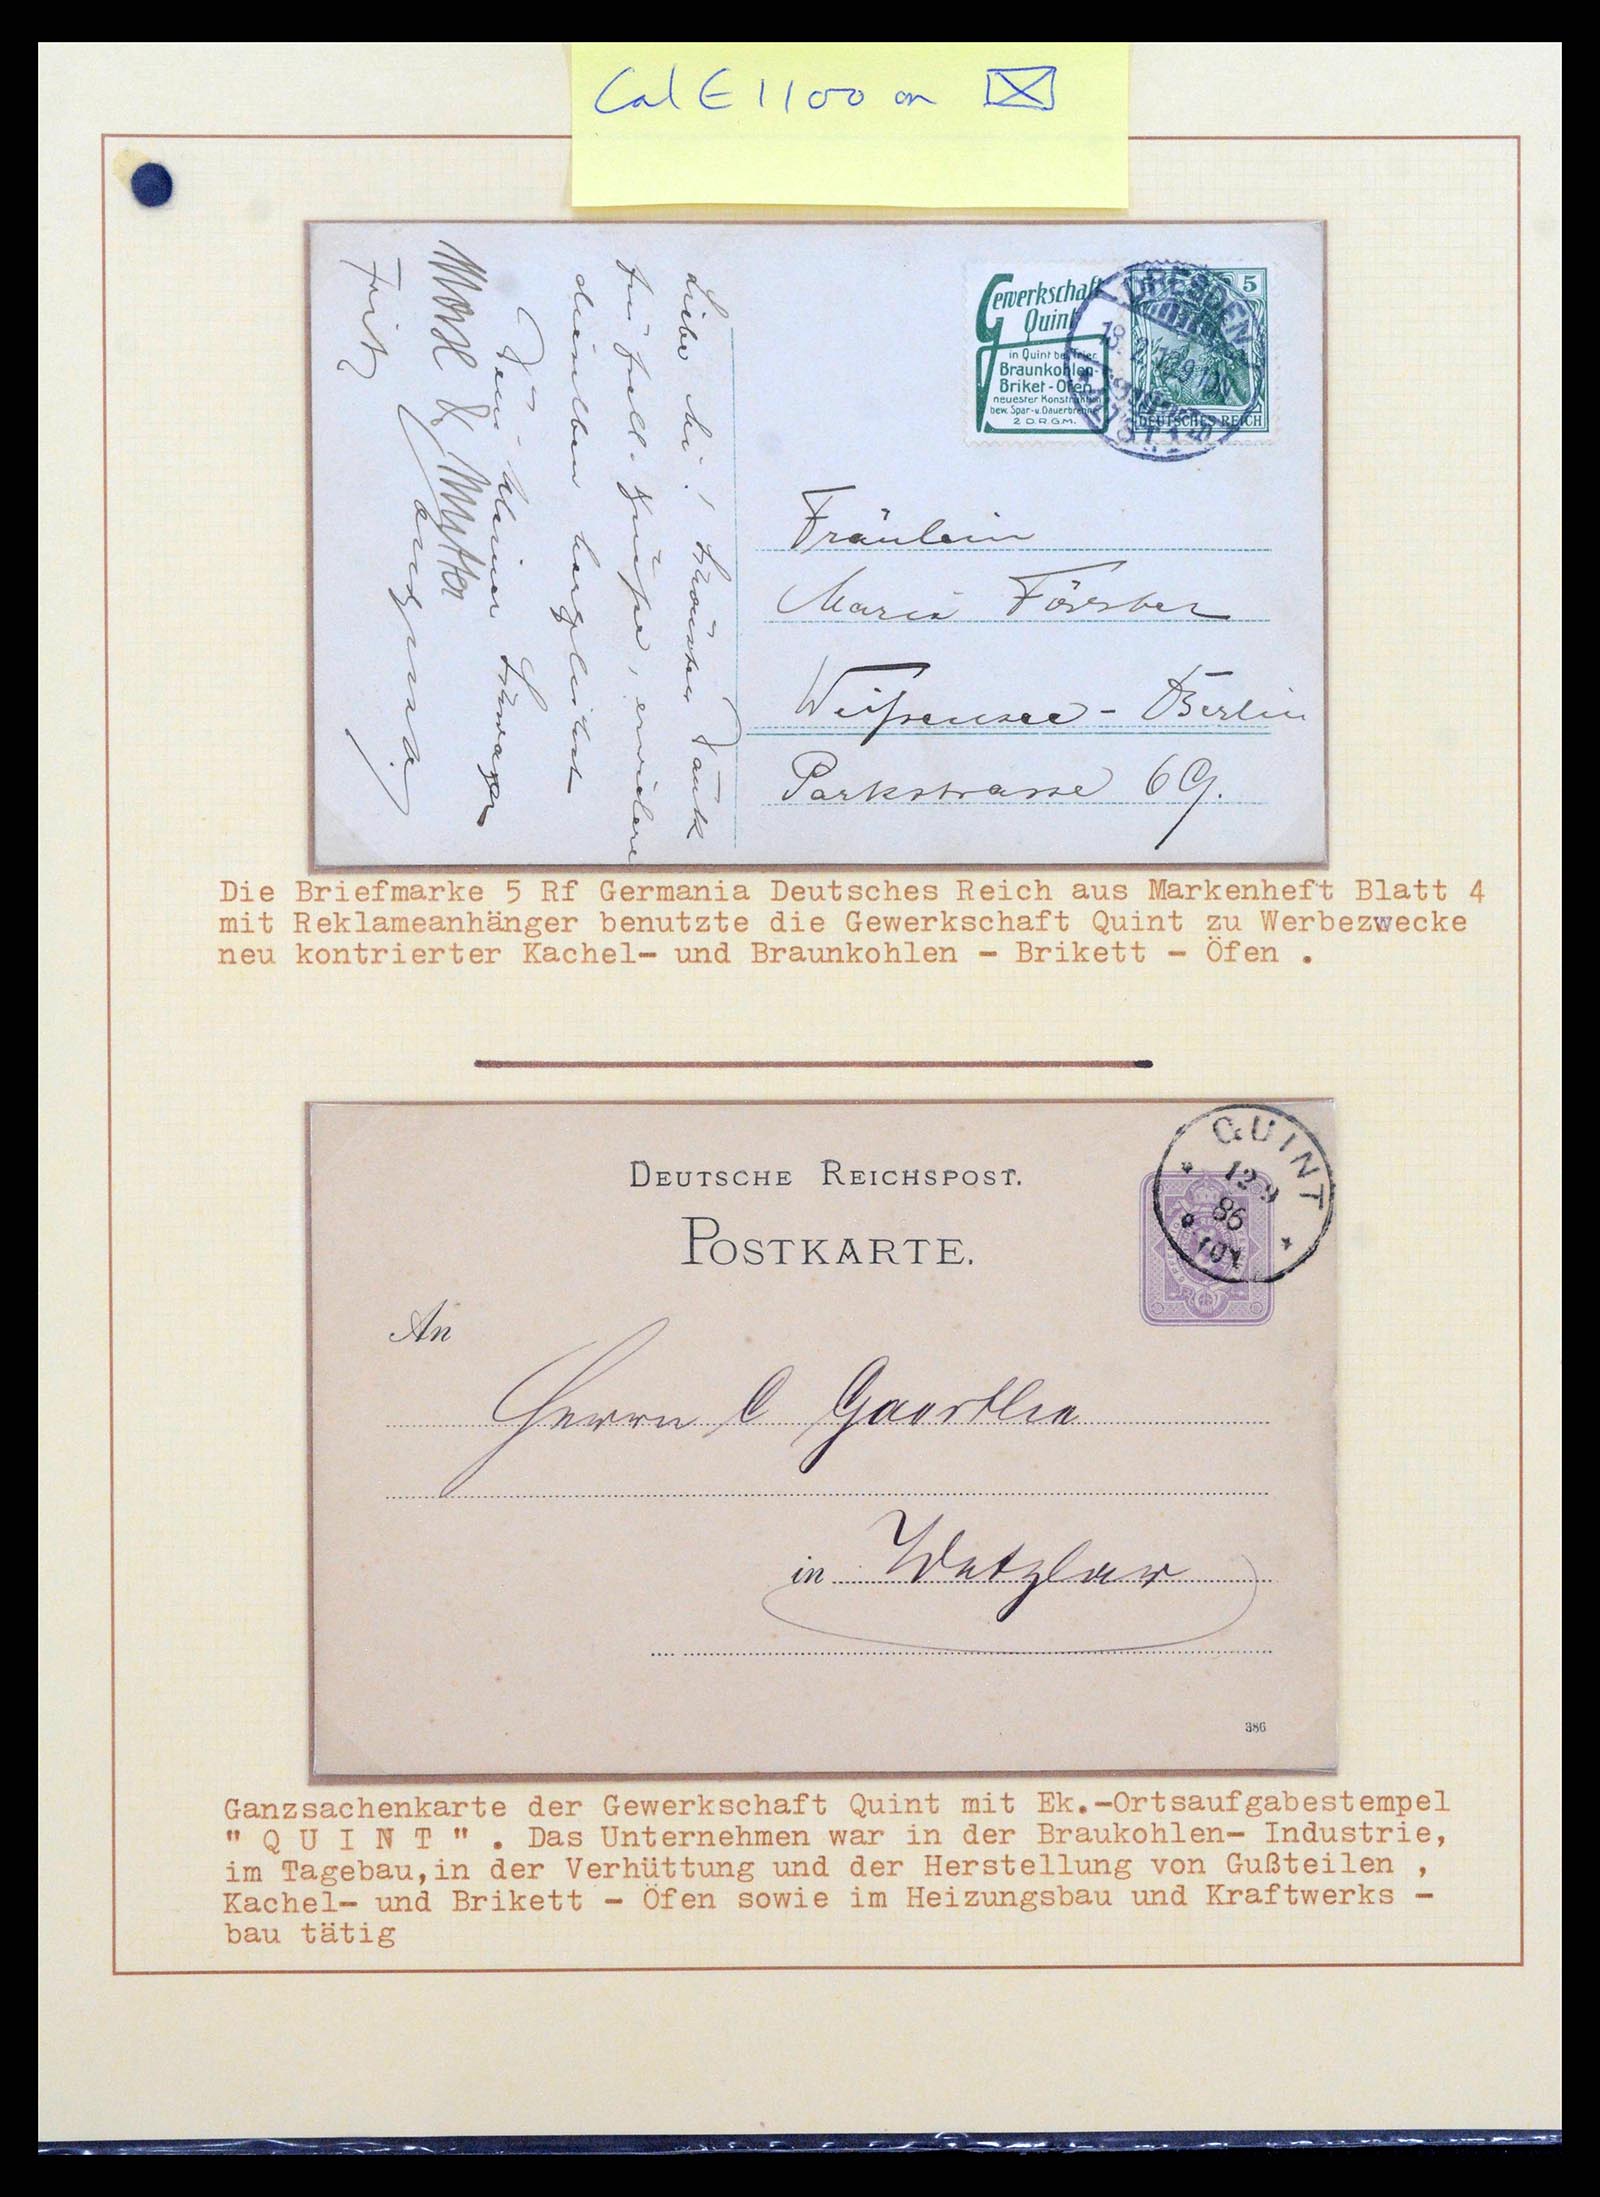 Cal € 1100 on
Gewerkschaft
Quint
in Quint bei Trier
Braunkohlen-
Briket-Öfen
neuester Konstruktion
bew. Spar- u. Dauerbrenner
2 D.R.G.M.
DRESDEN
5
DEUTSCHES REICH
Fräulein
Maria Förster
Weißensee - Berlin
Parkstrasse 69.
Liebe Mi! Dank
erwidere
denselben herzlichst
Dein kleiner Schwager
Fritz
Die Briefmarke 5 Rf Germania Deutsches Reich aus Markenheft Blatt 4
mit Reklameanhänger benutzte die Gewerkschaft Quint zu Werbezwecke
neu kontrierter Kachel- und Braunkohlen - Brikett - Öfen .
QUINT
12 9
86
DEUTSCHE REICHSPOST.
POSTKARTE.
An
Herrn C
in Wetzlar
386
Ganzsachenkarte der Gewerkschaft Quint mit Ek.-Ortsaufgabestempel
" Q U I N T " . Das Unternehmen war in der Braukohlen- Industrie,
im Tagebau,in der Verhüttung und der Herstellung von Gußteilen ,
Kachel- und Brikett - Öfen sowie im Heizungsbau und Kraftwerks -
bau tätig